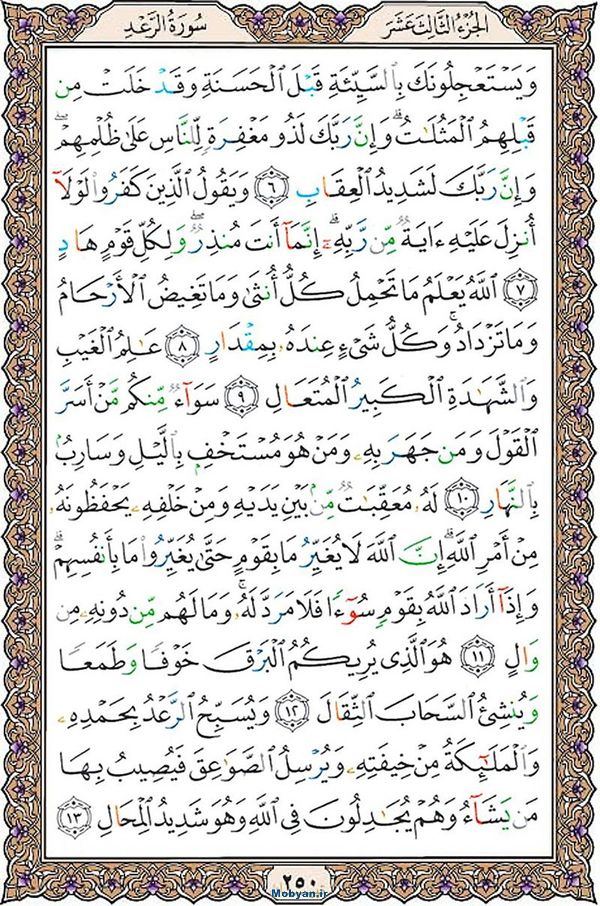 الجزء الثالث عشر
سورة الرعد
وَيَسْتَعْجِلُونَكَ بِالسَّيِّئَةِ قَبْلَ الْحَسَنَةِ وَقَدْ خَلَتْ مِن
قَبْلِهِمُ الْمَثُلَاتُ ۗ وَإِنَّ رَبَّكَ لَذُو مَغْفِرَةٍ لِّلنَّاسِ عَلَىٰ ظُلْمِهِمْ ۖ
وَإِنَّ رَبَّكَ لَشَدِيدُ الْعِقَابِ ٦ وَيَقُولُ الَّذِينَ كَفَرُوا لَوْلَآ
أُنزِلَ عَلَيْهِ ءَايَةٌ مِّن رَّبِّهِۦٓ ۗ إِنَّمَآ أَنتَ مُنذِرٌ ۖ وَلِكُلِّ قَوْمٍ هَادٍ
٧ اللَّهُ يَعْلَمُ مَا تَحْمِلُ كُلُّ أُنثَىٰ وَمَا تَغِيضُ الْأَرْحَامُ
وَمَا تَزْدَادُ ۖ وَكُلُّ شَىْءٍ عِندَهُۥ بِمِقْدَارٍ ٨ عَٰلِمُ الْغَيْبِ
وَالشَّهَٰدَةِ الْكَبِيرُ الْمُتَعَالِ ٩ سَوَآءٌ مِّنكُم مَّنْ أَسَرَّ
الْقَوْلَ وَمَن جَهَرَ بِهِۦ وَمَنْ هُوَ مُسْتَخْفٍ بِالَّيْلِ وَسَارِبٌ
بِالنَّهَارِ ١٠ لَهُۥ مُعَقِّبَٰتٌ مِّنۢ بَيْنِ يَدَيْهِ وَمِنْ خَلْفِهِۦ يَحْفَظُونَهُۥ
مِنْ أَمْرِ اللَّهِ ۗ إِنَّ اللَّهَ لَا يُغَيِّرُ مَا بِقَوْمٍ حَتَّىٰ يُغَيِّرُوا مَا بِأَنفُسِهِمْ ۗ
وَإِذَآ أَرَادَ اللَّهُ بِقَوْمٍ سُوٓءًا فَلَا مَرَدَّ لَهُۥ ۚ وَمَا لَهُم مِّن دُونِهِۦ مِن
وَالٍ ١١ هُوَ الَّذِى يُرِيكُمُ الْبَرْقَ خَوْفًا وَطَمَعًا
وَيُنشِئُ السَّحَابَ الثِّقَالَ ١٢ وَيُسَبِّحُ الرَّعْدُ بِحَمْدِهِۦ
وَالْمَلَٰٓئِكَةُ مِنْ خِيفَتِهِۦ وَيُرْسِلُ الصَّوَٰعِقَ فَيُصِيبُ بِهَا
مَن يَشَآءُ وَهُمْ يُجَٰدِلُونَ فِى اللَّهِ وَهُوَ شَدِيدُ الْمِحَالِ ١٣
٢٥٠
Mobyan.ir